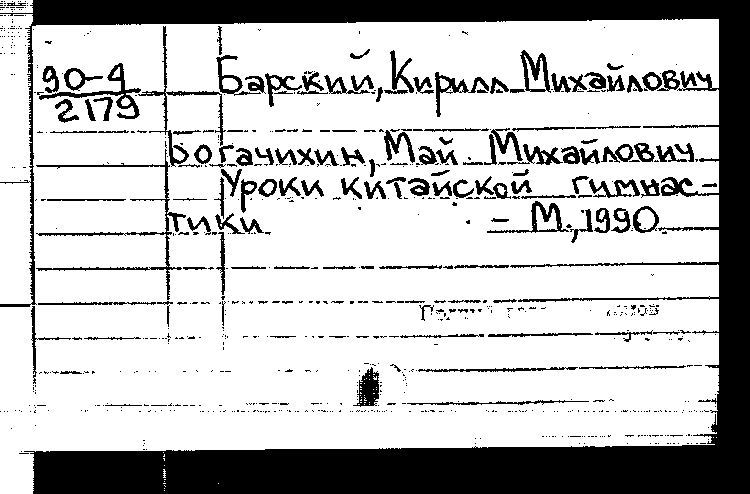 90-4
2179
Барский, Кирилл Михайлович
Богачихин, Май Михайлович
Уроки китайской гимнас-
тики - М., 1990